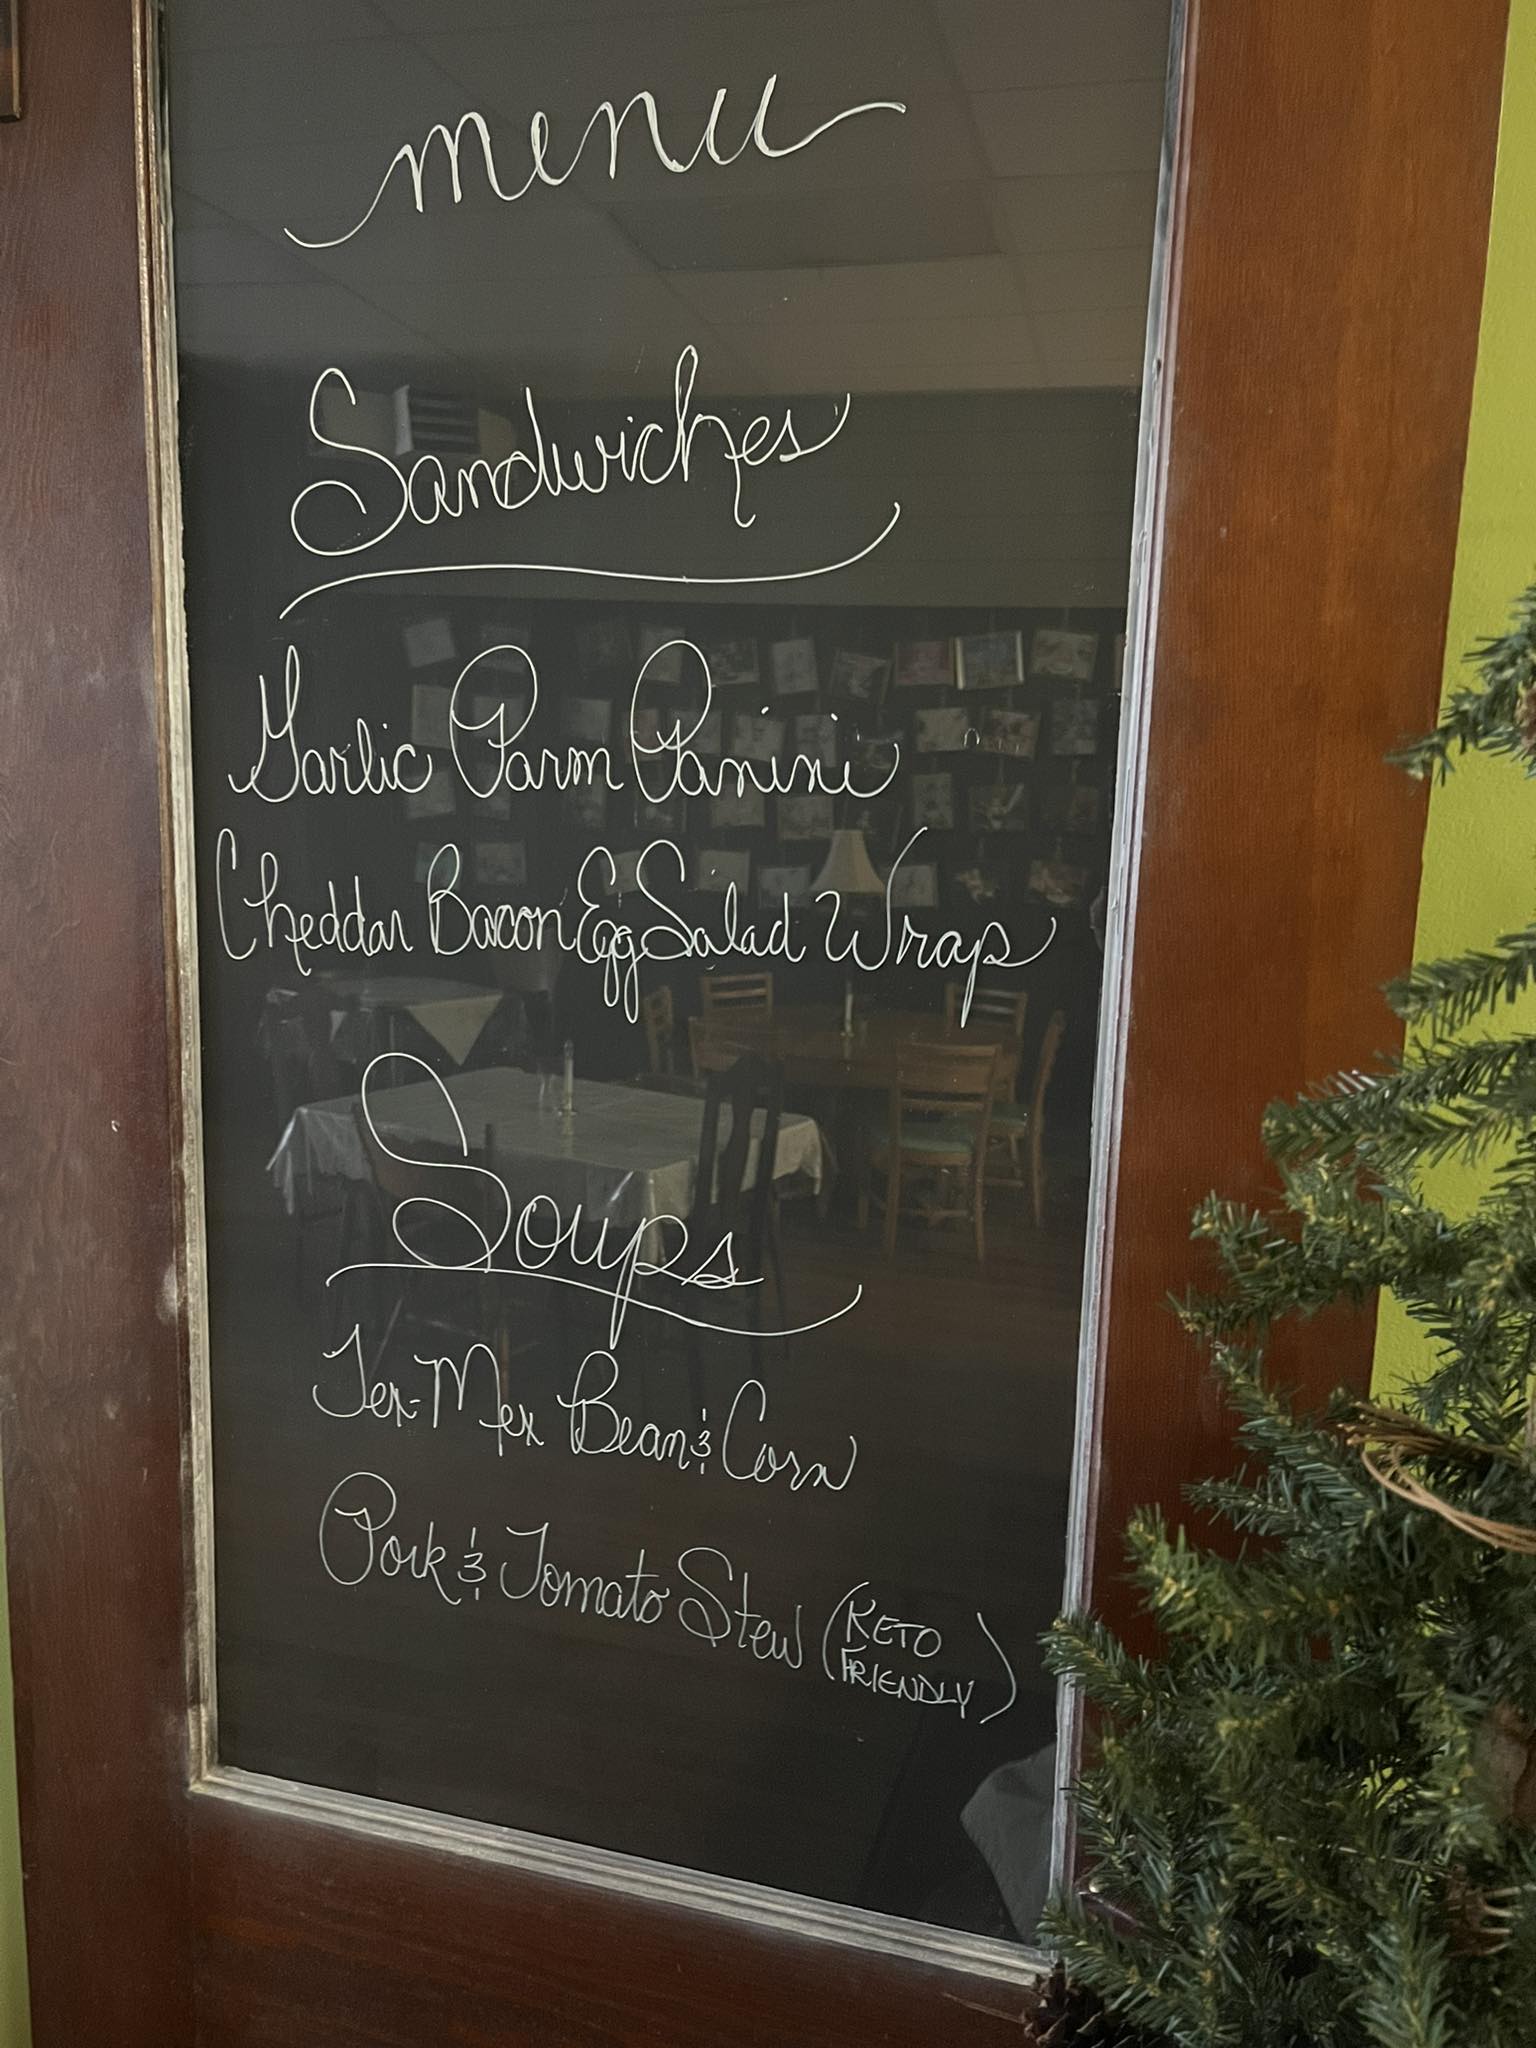 menu
Sandwiches
Garlic Parm Panini
Cheddar Bacon Egg Salad Wrap
Soups
Tex-Mex Bean & Corn
Pork & Tomato Stew (KETO
FRIENDLY)